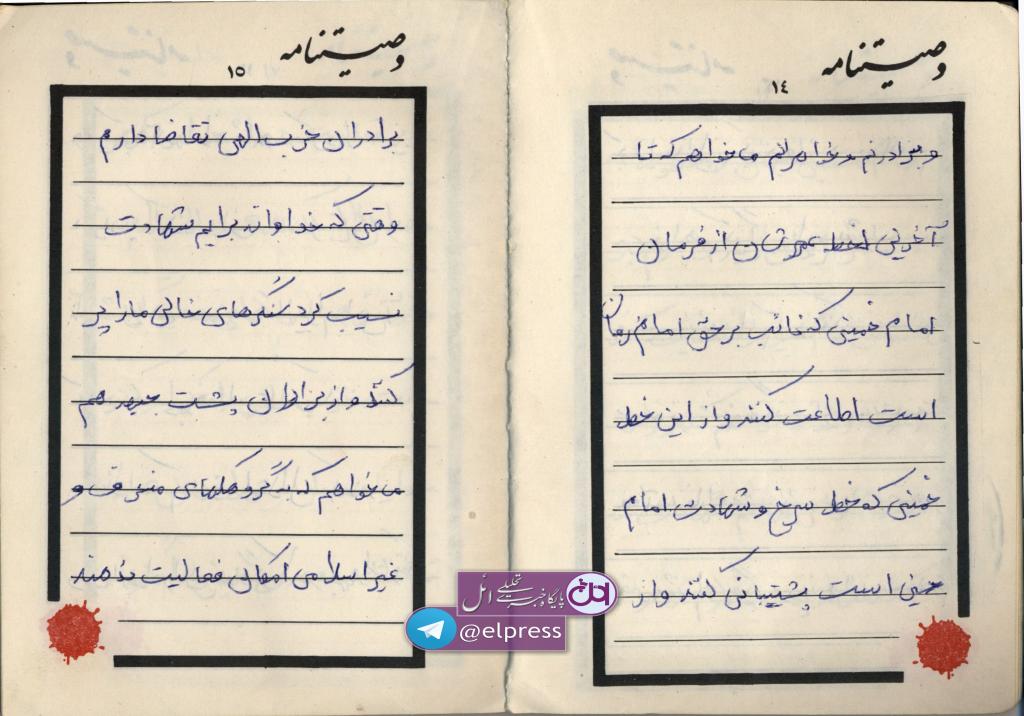 وصیتنامه
١٤
و برادرنم و خواهرانم میخواهم که تا
آخرین لحظه عمرشان از فرمان
امام خمینی که نائب بر حق امام زمان
است اطاعت کنند و از این خط
خمینی که خط سرخ و شهادت امام
حسینی است پشتیبانی کنند و از
وصیتنامه
١٥
برادران حزب الهی تقاضا دارم
وقتی که خداوند برایم شهادت
نسیب کرد سنگرهای خالی ما را پر
کنند و از برادران پشت جبهه هم
میخواهم که به گروهکهای منحرف و
غیر اسلامی امکان فعالیت ندهند
پایگاه خبری تحلیلی ائل
@elpress